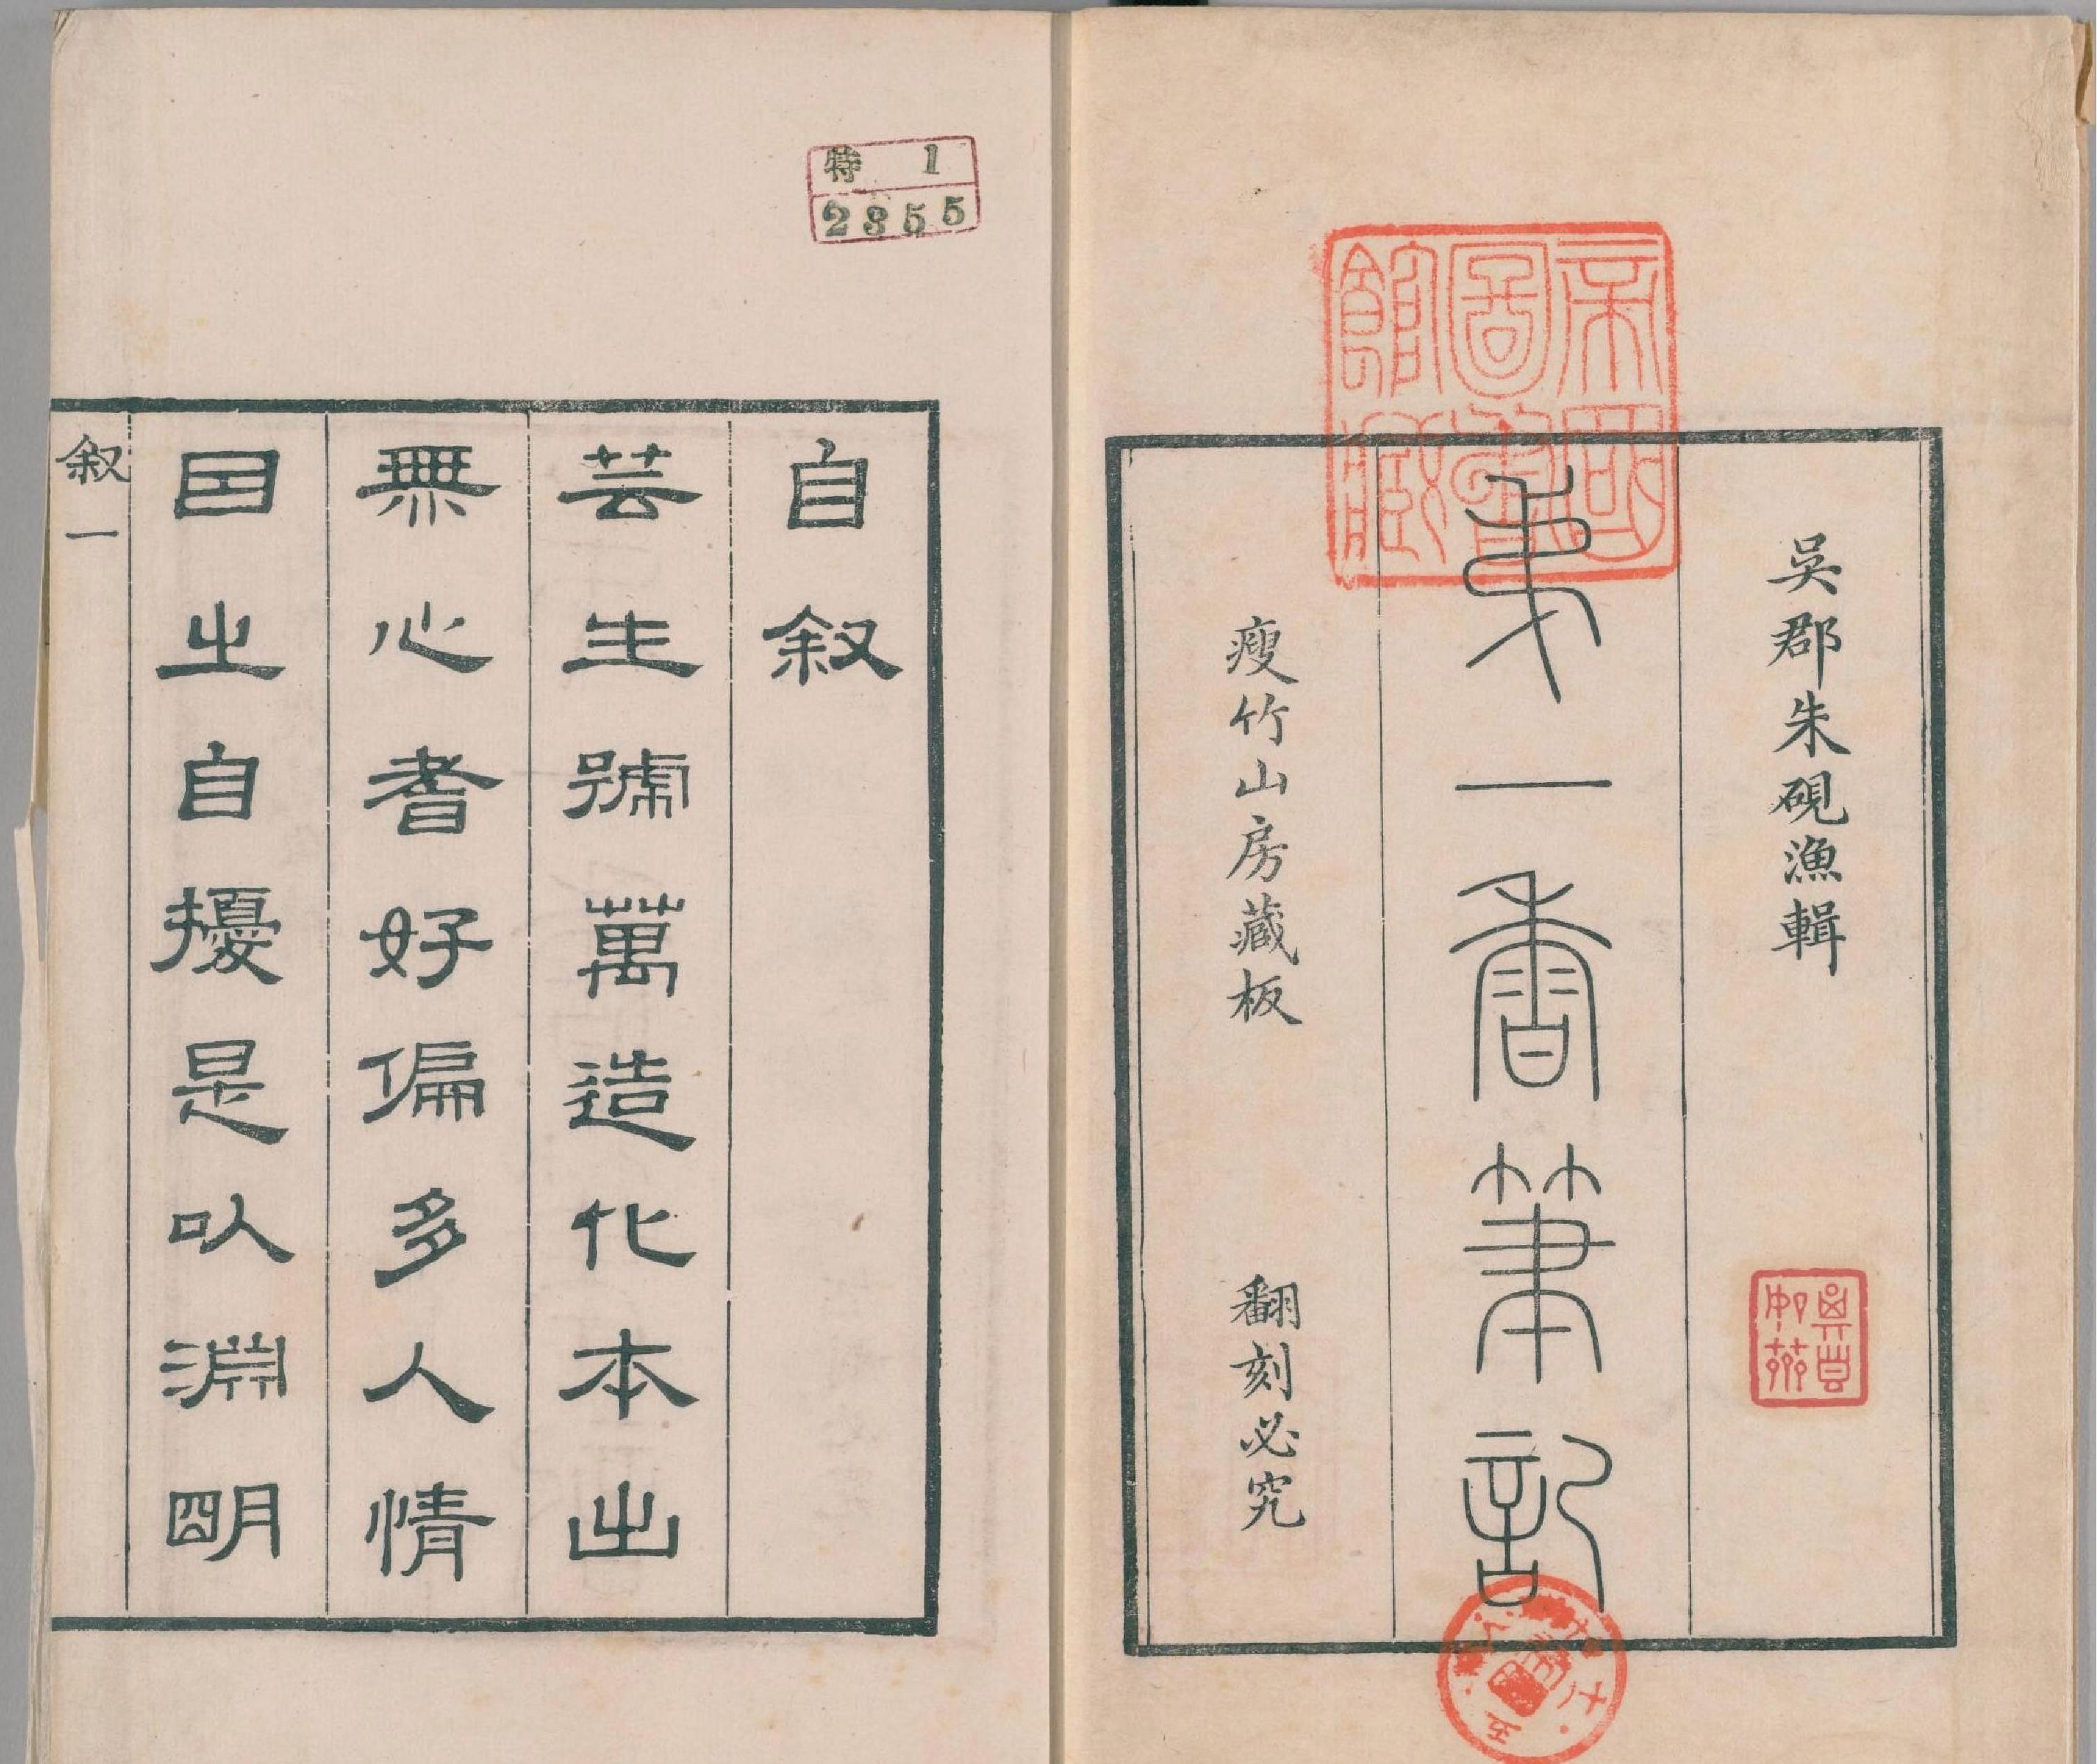 帝國
圖書
館藏
吳郡朱硯漁輯
弟一香筆記
瘦竹山房藏板
翻刻必究
特 1
2355
自叙
芸生號萬造化本出
無心耆好偏多人情
囙之自擾是以淵明
叙一